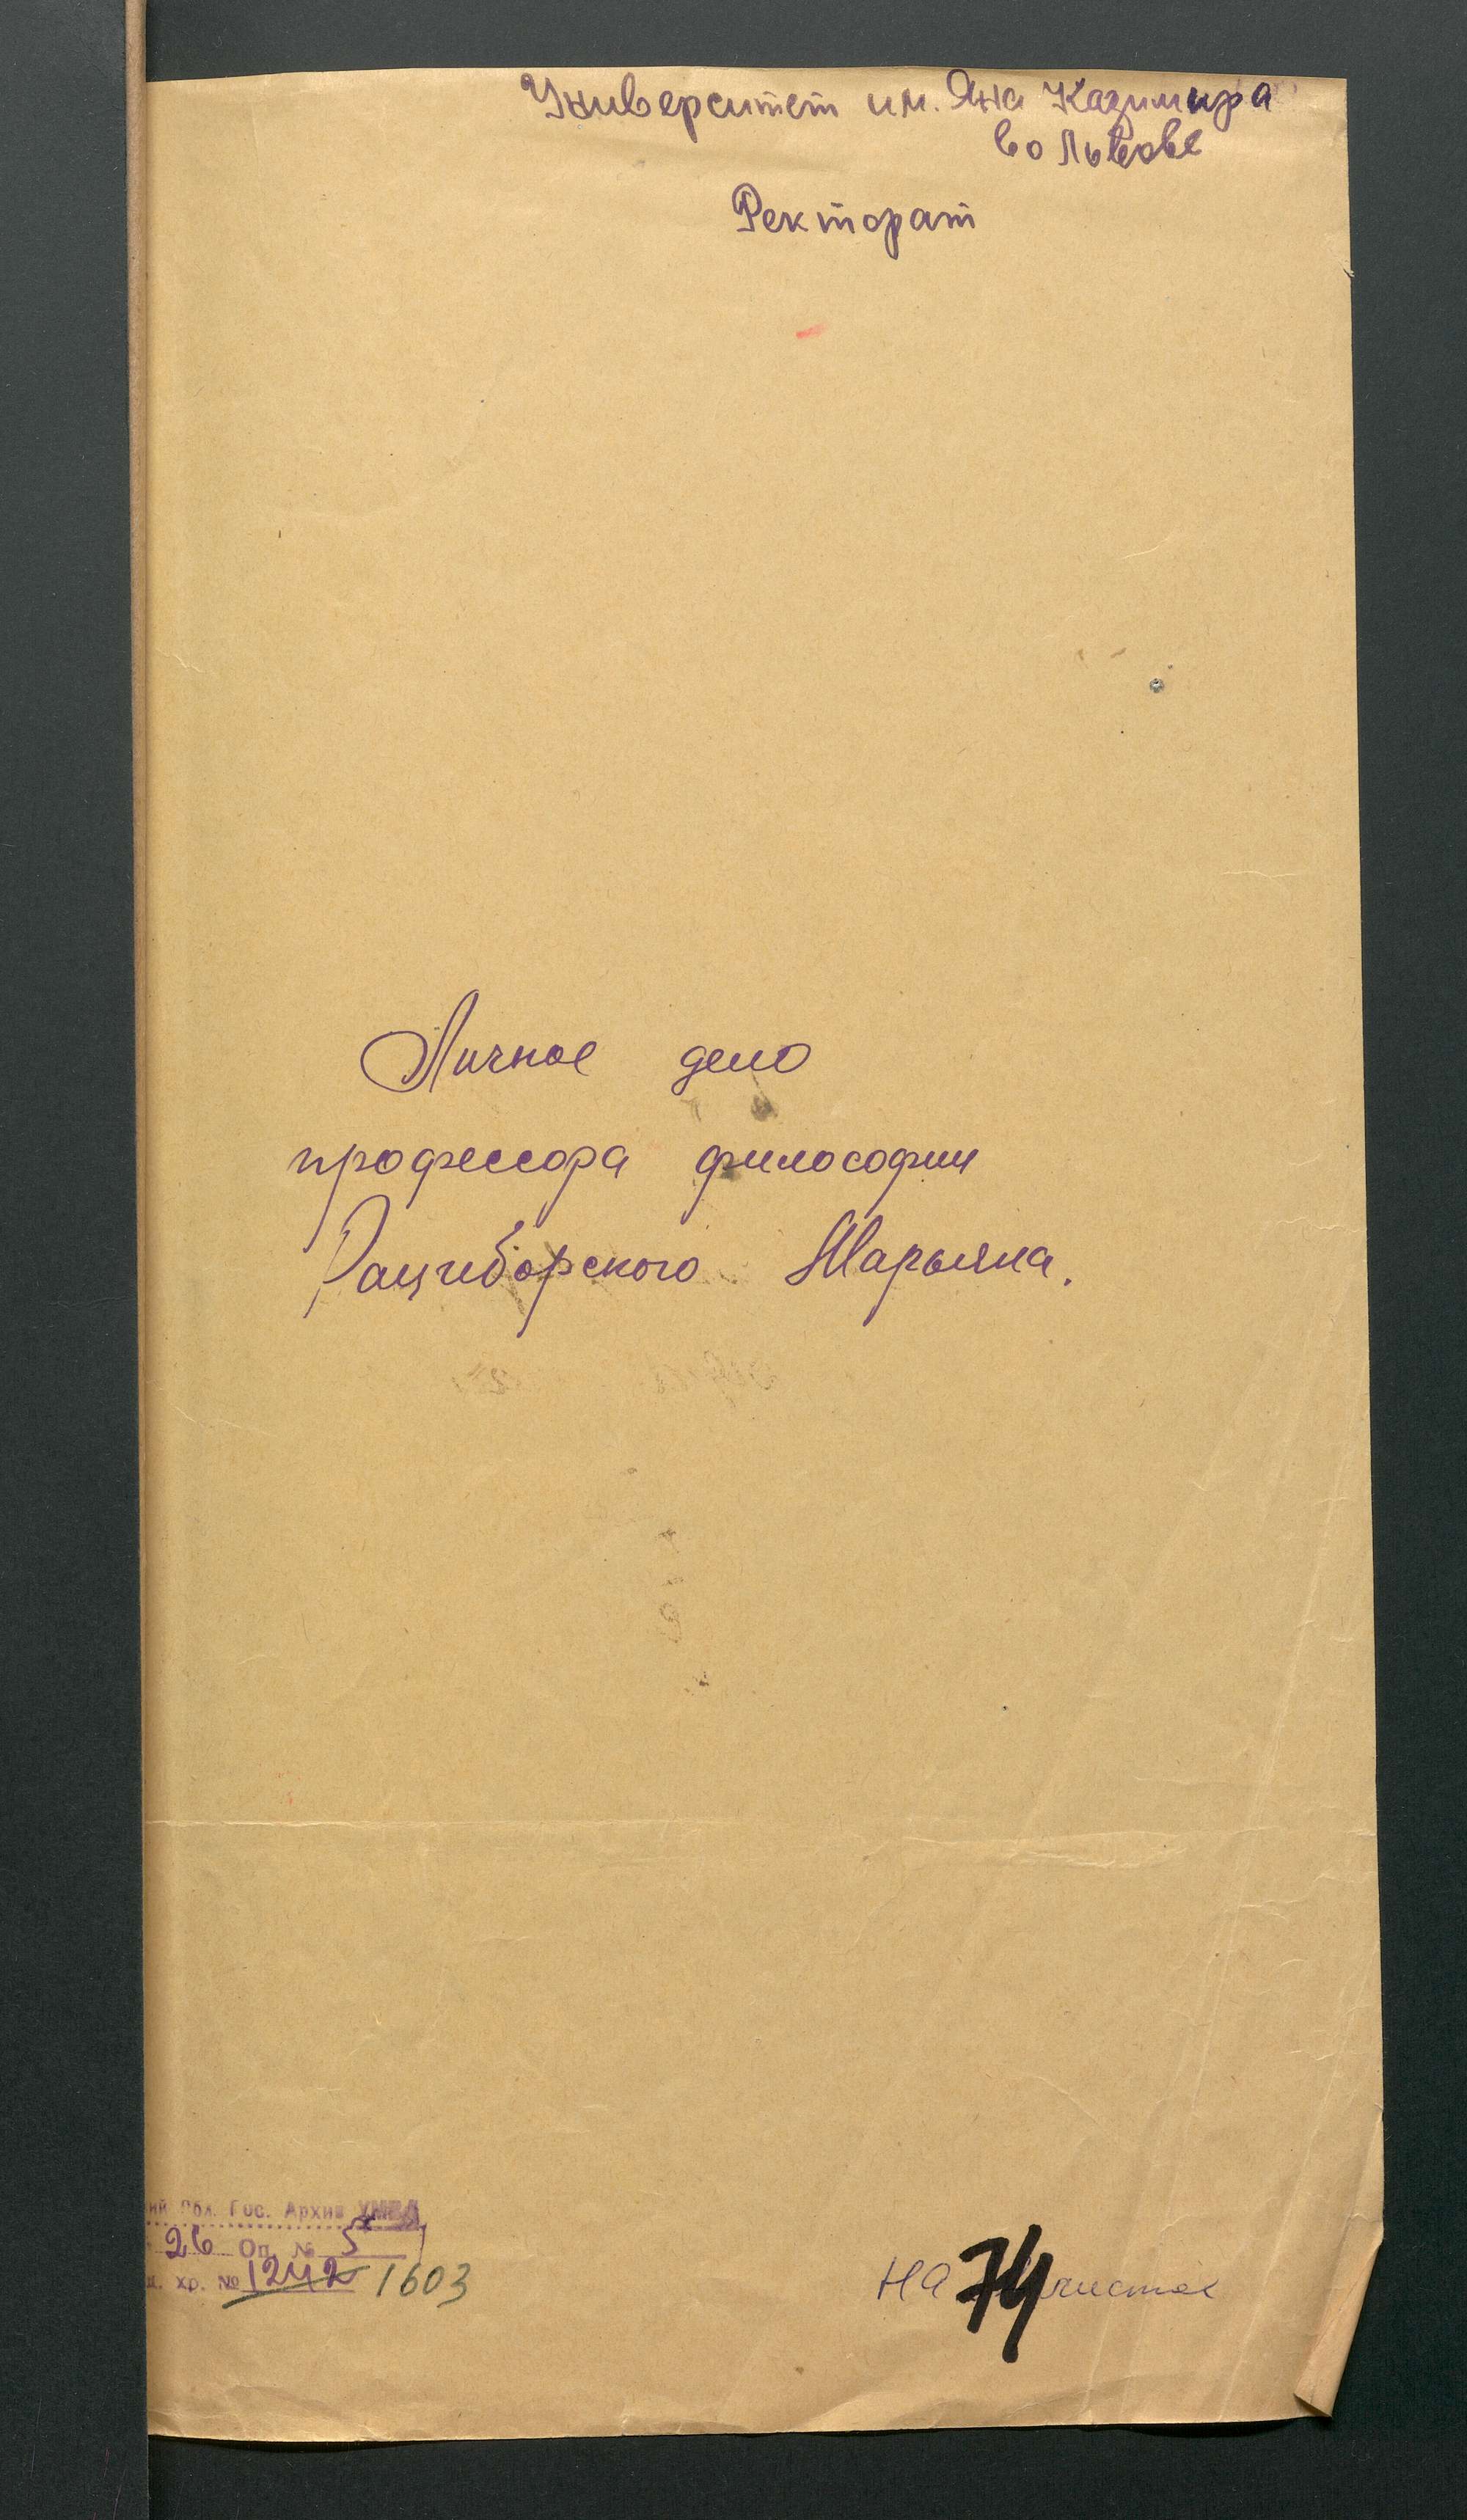 Университет им. Яна Казимира
во Львове
Ректорат
Личное дело
профессора философии
Рациборского Марьяна.
ий Обл. Гос. Архив
26 Оп. № 5
хр. № 1242 1603
на 74 листах